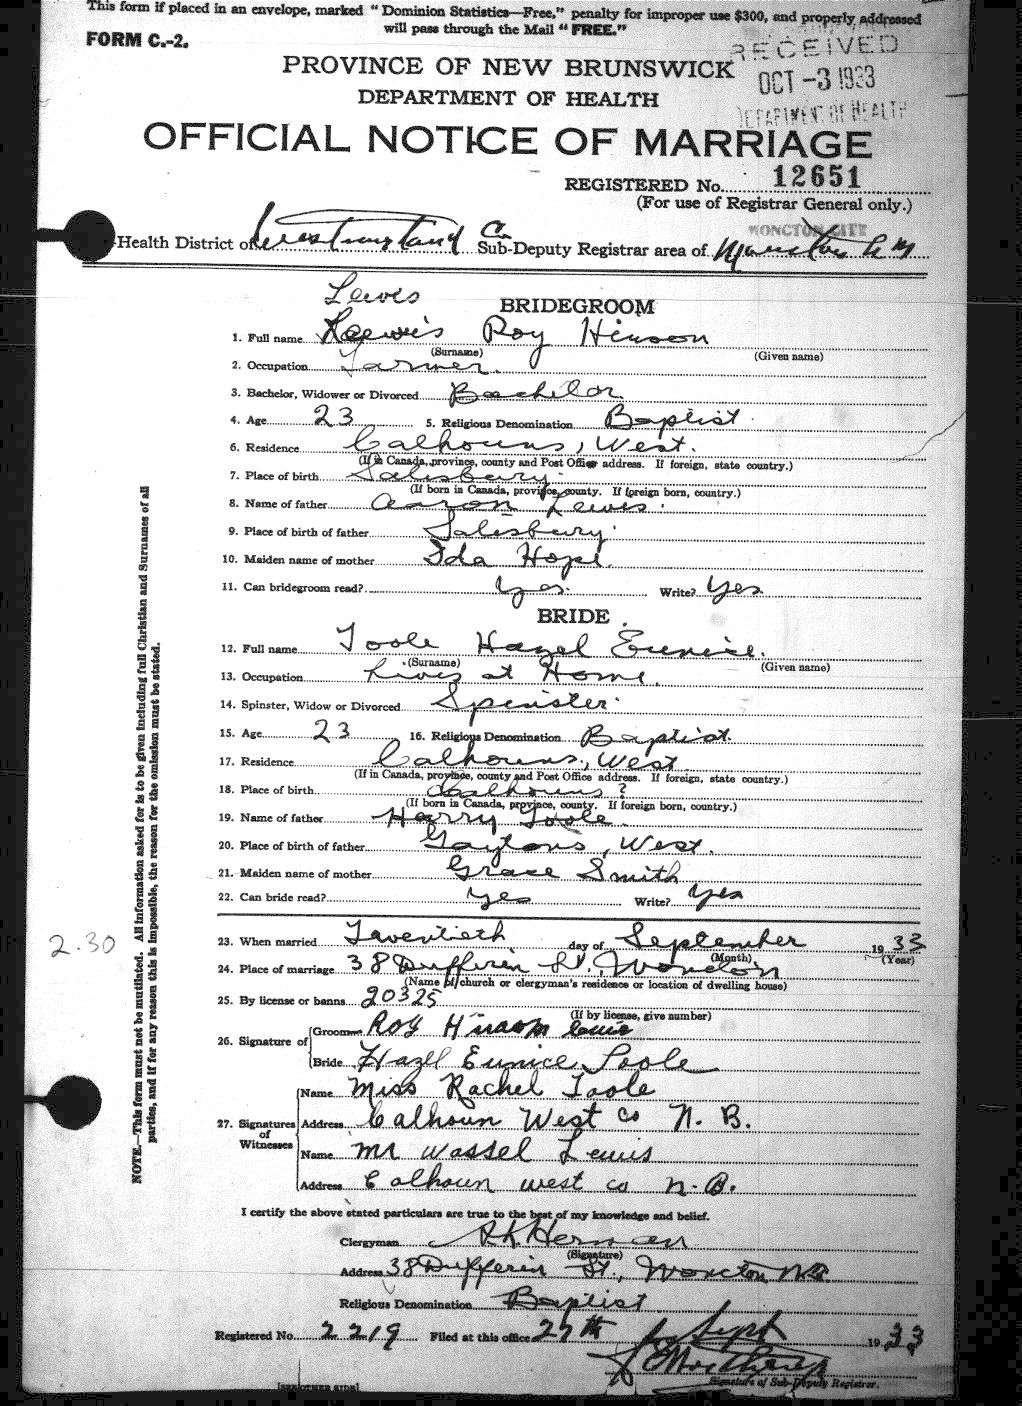 This form if placed in an envelope, marked "Dominion Statistics—Free," penalty for improper use $300, and properly addressed
will pass through the Mail "FREE."
FORM C.-2.
RECEIVED
OCT -3 1933
DEPARTMENT OF HEALTH
PROVINCE OF NEW BRUNSWICK
DEPARTMENT OF HEALTH
OFFICIAL NOTICE OF MARRIAGE
REGISTERED No. 12651
(For use of Registrar General only.)
MONCTON CITY
Health District of Westmorland Co. Sub-Deputy Registrar area of Moncton
Lewis
BRIDEGROOM
1. Full name Roy Hinson
(Surname) (Given name)
2. Occupation Farmer.
3. Bachelor, Widower or Divorced Bachelor
4. Age 23 5. Religious Denomination Baptist
6. Residence Calhouns, West.
(If in Canada, province, county and Post Office address. If foreign, state country.)
7. Place of birth Salisbury
(If born in Canada, province, county. If foreign born, country.)
8. Name of father Aaron Lewis.
9. Place of birth of father Salisbury
10. Maiden name of mother Ida Hope.
11. Can bridegroom read? Yes. Write? Yes
BRIDE
12. Full name Toole Hazel Eunice.
(Surname) (Given name)
13. Occupation Lives at Home.
14. Spinster, Widow or Divorced Spinster
15. Age 23 16. Religious Denomination Baptist.
17. Residence Calhouns, West
(If in Canada, province, county and Post Office address. If foreign, state country.)
18. Place of birth Calhouns?
(If born in Canada, province, county. If foreign born, country.)
19. Name of father Harry Toole.
20. Place of birth of father Gaytons, West.
21. Maiden name of mother Grace Smith
22. Can bride read? Yes Write? Yes
2.30
23. When married Twentieth day of September 1933
(Month) (Year)
24. Place of marriage 38 Dufferin St., Moncton
(Name of church or clergyman's residence or location of dwelling house)
25. By license or banns 20325
(If by license, give number)
26. Signature of
Groom Roy Hinson Lewis
Bride Hazel Eunice Toole
27. Signatures of Witnesses
Name Miss Rachel Toole
Address Calhoun West Co N. B.
Name Mr Wassel Lewis
Address Calhoun West Co N. B.
I certify the above stated particulars are true to the best of my knowledge and belief.
Clergyman Herman
(Signature)
Address 38 Dufferin St., Moncton N.B.
Religious Denomination Baptist
Registered No. 2219 Filed at this office 27th Sept 1933
Signature of Sub-Deputy Registrar.
[SEE OTHER SIDE]
NOTE.—This form must not be mutilated. All information asked for is to be given including full Christian and Surnames of all
parties, and if for any reason this is impossible, the reason for the omission must be stated.